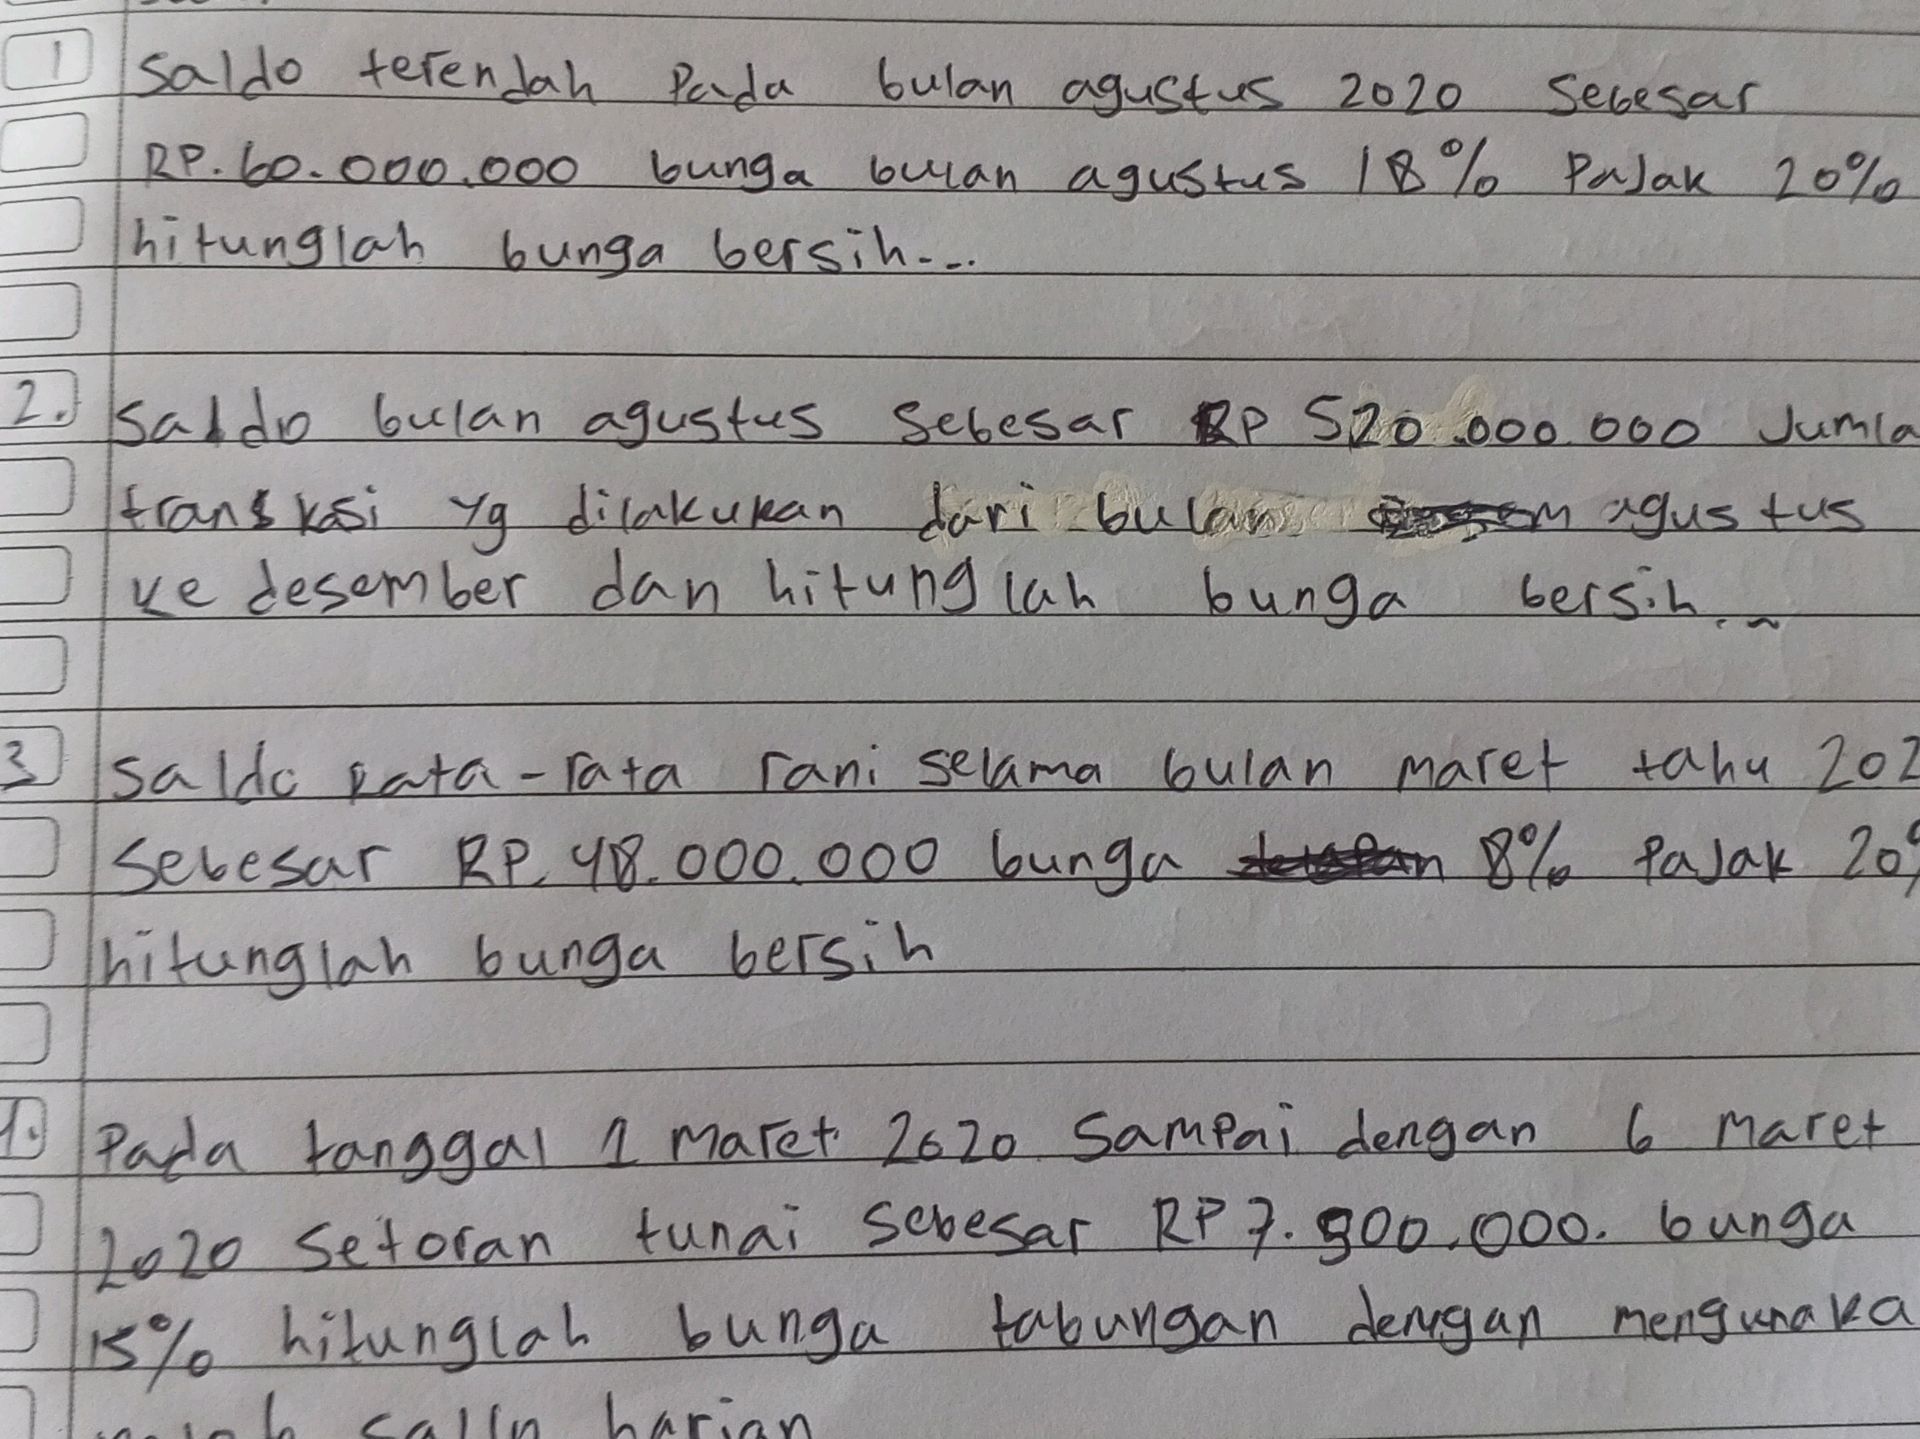 1 Saldo terendah Pada bulan agustus 2020 Sebesar
RP. 60.000.000 bunga bulan agustus 18% Pajak 20%
hitunglah bunga bersih...
2. Saldo bulan agustus Sebesar RP 520.000.000 Jumla
transksi yg dilakukan dari bulan agustus
ke desember dan hitunglah bunga bersih...
3 Saldo rata-rata rani selama bulan maret tahu 202
Sebesar RP. 48.000.000 bunga 8% Pajak 20%
hitunglah bunga bersih
Pada tanggal 1 Maret 2020 Sampai dengan 6 Maret
2020 Setoran tunai Sebesar RP 7.900.000. bunga
15% hitunglah bunga tabungan dengan mengunaka
harian